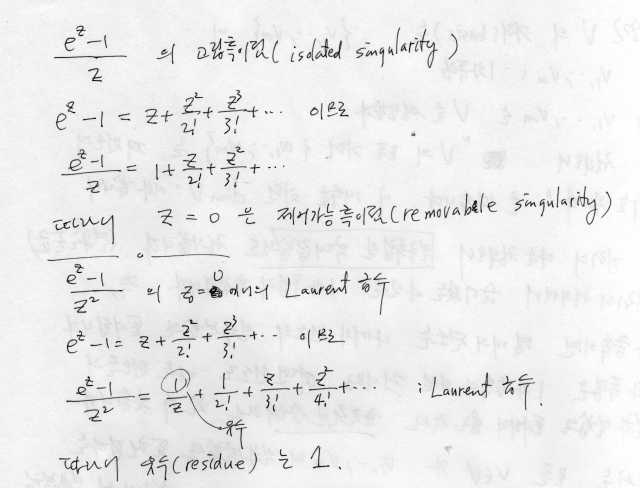 e^z-1/z 의 고립특이점(isolated singularity)
e^z-1 = z+z^2/2!+z^3/3!+⋯ 이므로
e^z-1/z = 1+z/2!+z^2/3!+⋯
따라서 z=0 은 제거가능특이점(removable singularity)
e^z-1/z^2 의 z_0=0 에서의 Laurent 급수
e^z-1= z+z^2/2!+z^3/3!+⋯ 이므로
e^z-1/z^2 = 1/z+1/2!+z/3!+z^2/4!+⋯ ; Laurent 급수.
유수
따라서 유수(residue) 는 1.